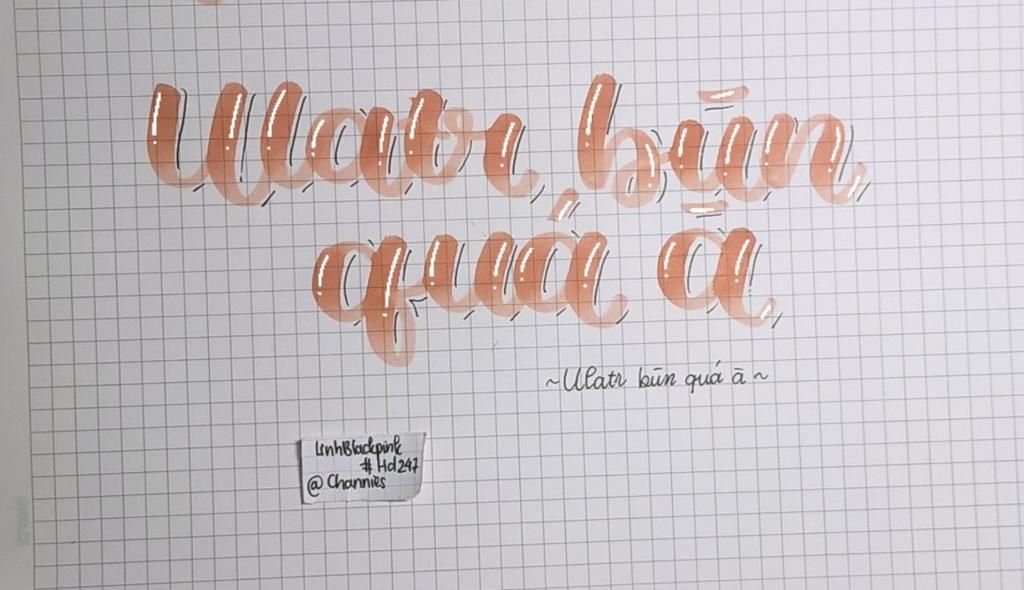 Ulatr būn
quá ā
~Ulatr būn quá ā~
LinhBlackpink
#Hd247
@Channies